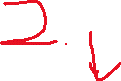 2. ↓